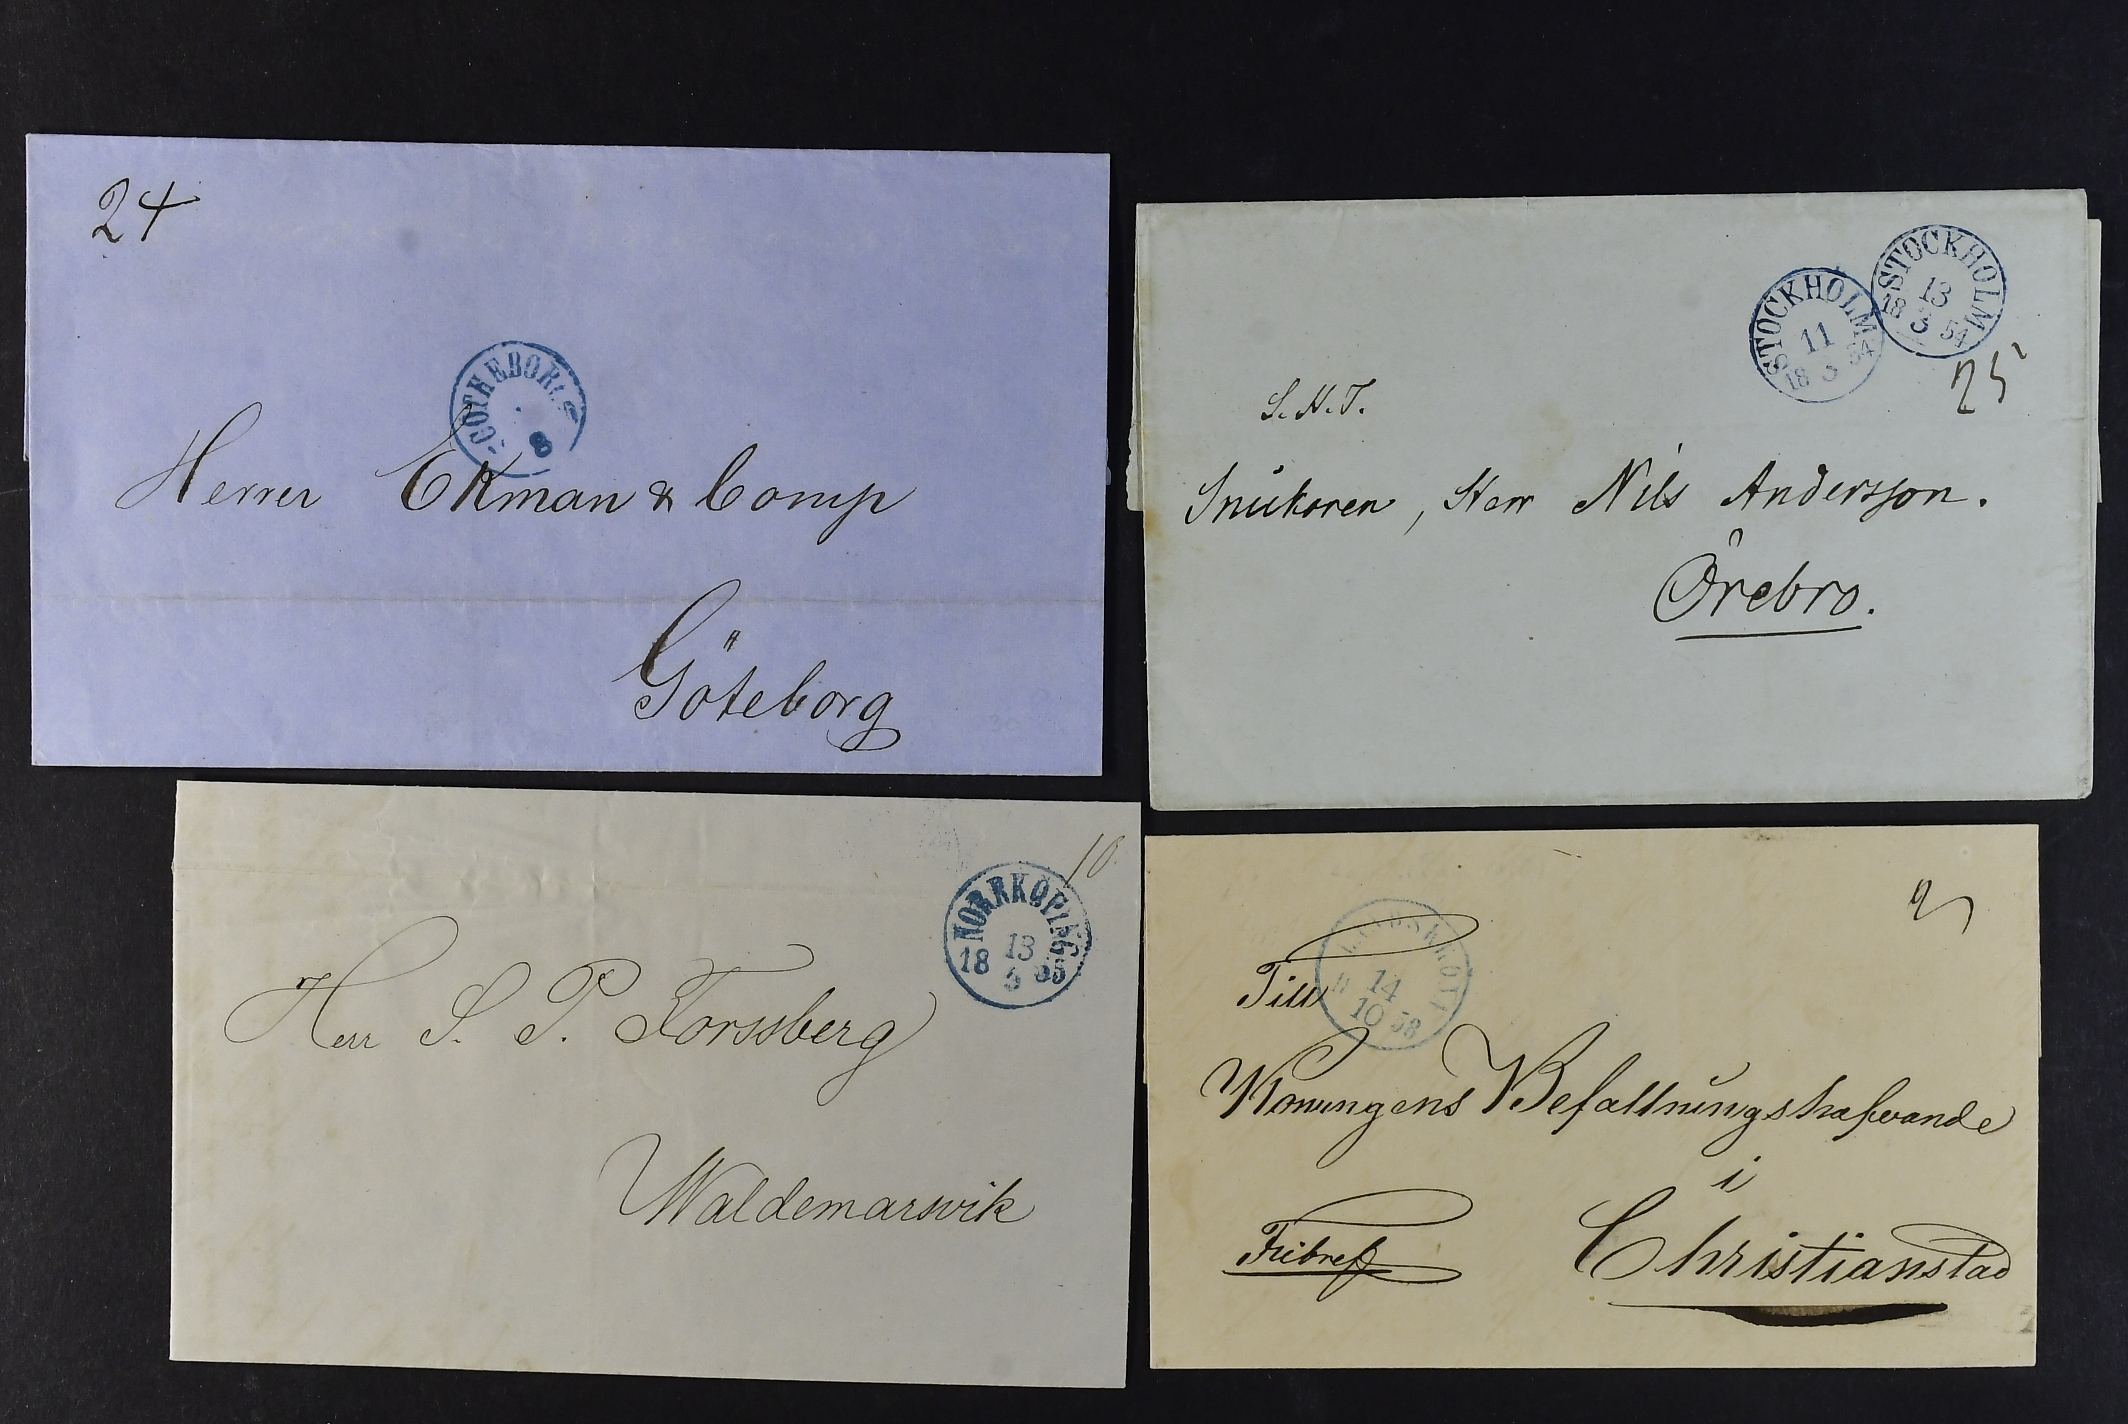 24
GÖTHEBORG
8
Herrer Ekman & Comp
Göteborg
STOCKHOLM
11
18 3 54
STOCKHOLM
13
18 3 54
25
S. H. T.
Snickaren, Herr Nils Andersson.
Örebro.
10
NORRKÖPING
13
18 55
Herr S. P. Forssberg
Waldemarsvik
14
10 58
Till
Konungens Befallningshafvande
i
Christianstad
Fribref